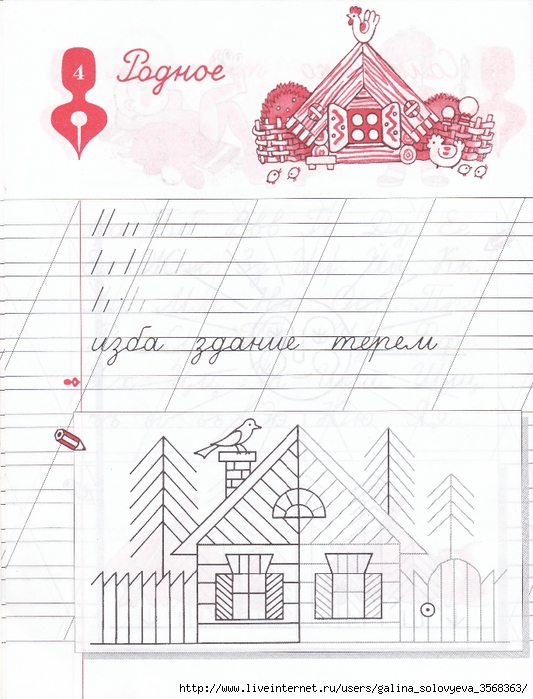 4
Родное
изба здание терем
http://www.liveinternet.ru/users/galina_solovyeva_3568363/